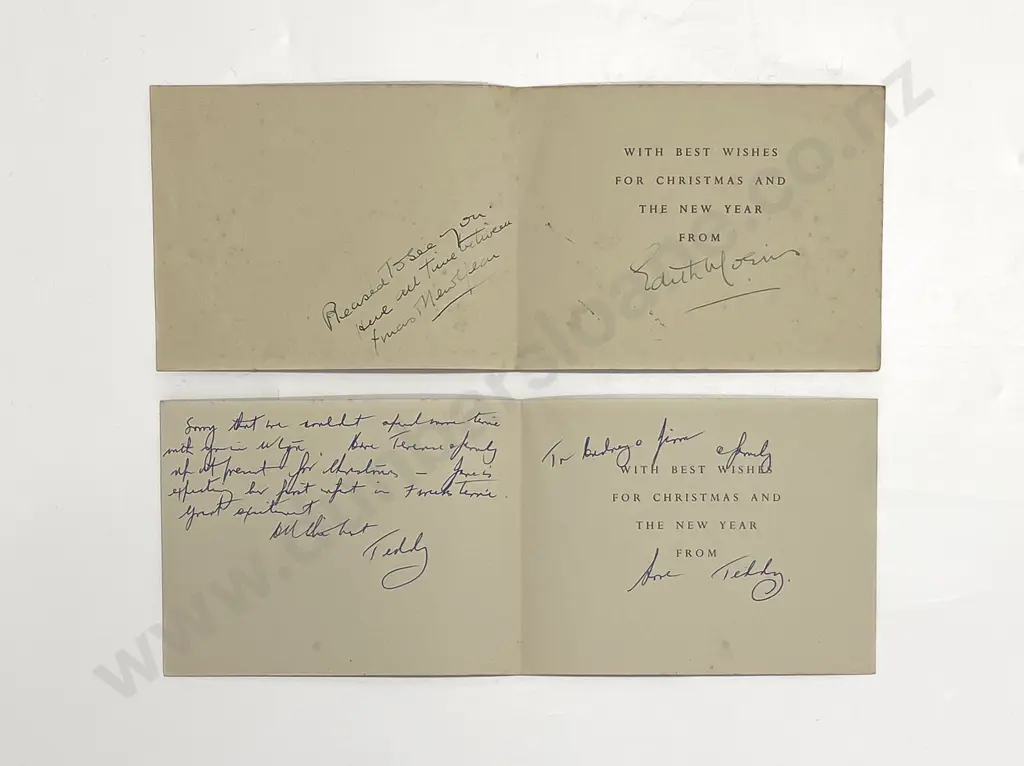 Pleased to see you.
time between
Xmas & New Year
WITH BEST WISHES
FOR CHRISTMAS AND
THE NEW YEAR
FROM
Edith Morris
Sorry that we couldn't spend more time
with you in Wgtn. Have Terence & family
at present for Christmas — Jane is
expecting her first in time.
Great excitement
All the best
Teddy
To Audrey & Jim & family
WITH BEST WISHES
FOR CHRISTMAS AND
THE NEW YEAR
FROM
Teddy.
www.dunbarsloane.co.nz